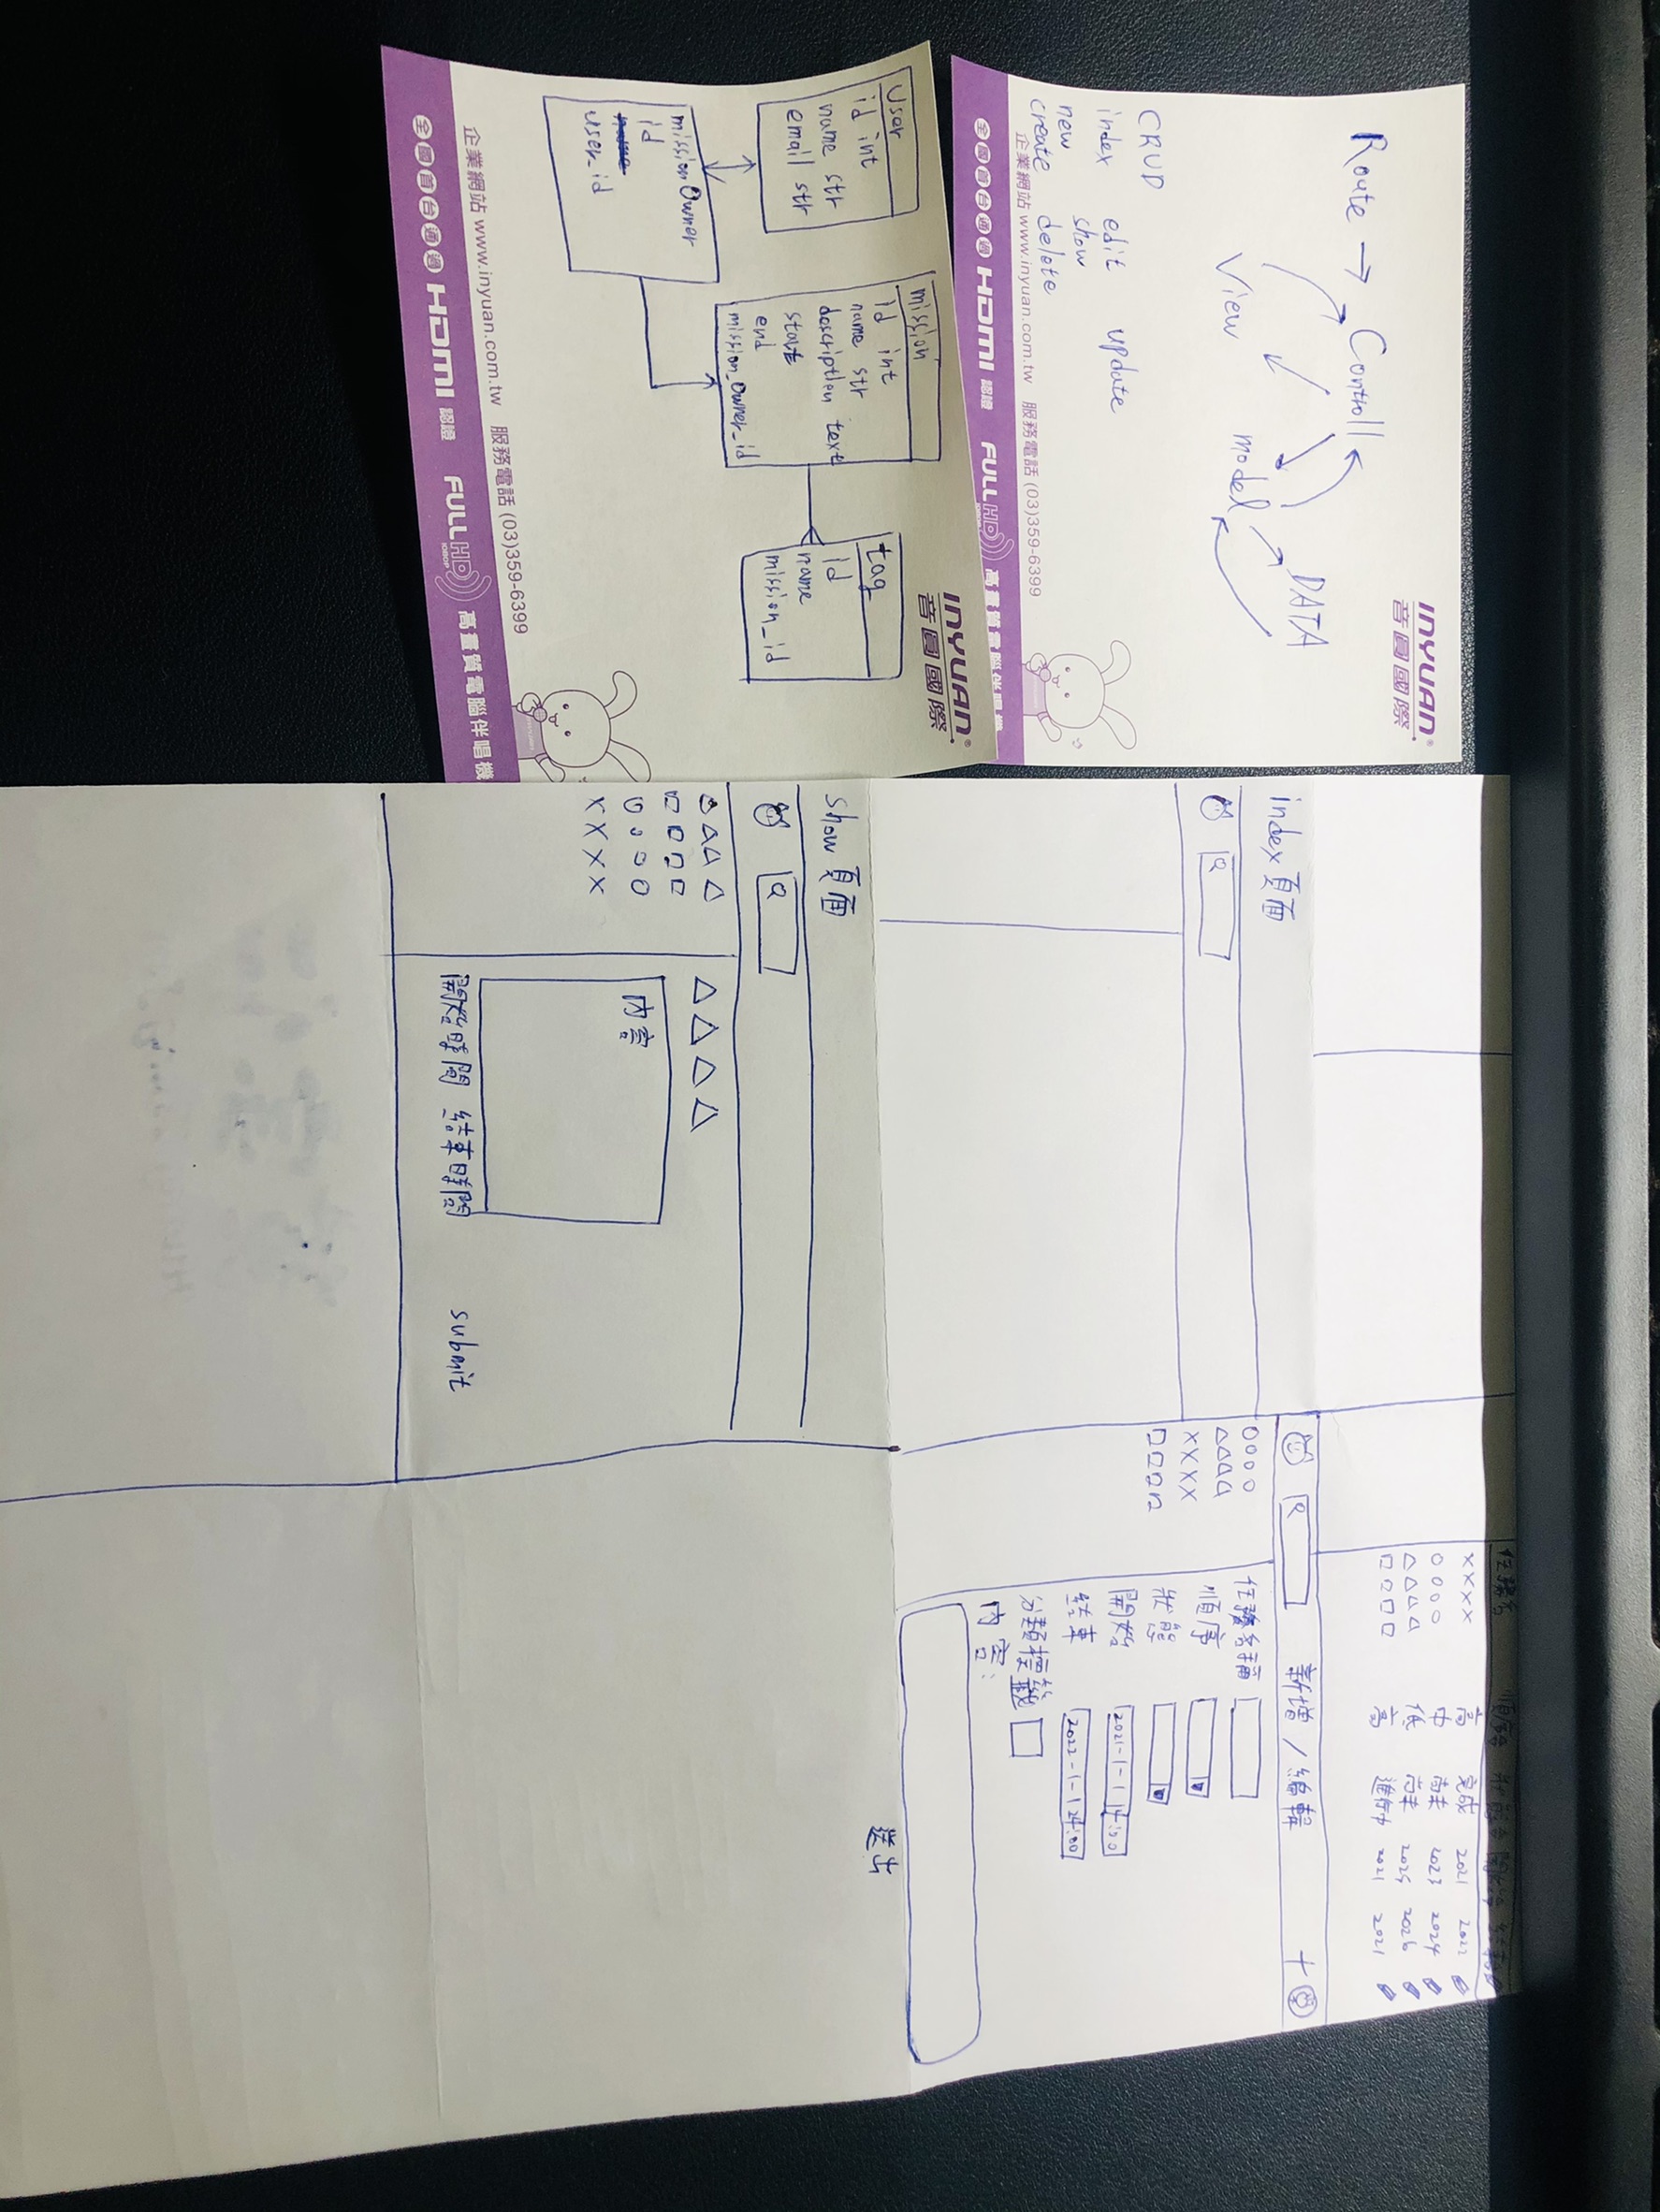 INYUAN®
音圓國際
Route → Controll
DATA
View
model
CRUD
index edit update
new show
create delete
企業網站 www.inyuan.com.tw 服務電話 (03)359-6399
全國首台通過 HDMI 認證 FULL HD 1080P 高畫質電腦伴唱機
INYUAN®
音圓國際
User
id int
name str
email str
mission
id int
name str
descriptlen text
start
end
mission_Owner_id
tag
id
name
mission_id
missionOwner
id
user_id
企業網站 www.inyuan.com.tw 服務電話 (03)359-6399
全國首台通過 HDMI 認證 FULL HD 1080P 高畫質電腦伴唱機
任務名
XXXX 高 完成 2021 2022
○○○○ 中 尚未 2023 2024
△△△△ 低 尚未 2025 2026
□□□□ 高 進行中 2021 2021
index 頁面
新增 / 編輯 +
○○○○
△△△△
XXXX
□□□□
任務名稱
順序
狀態
開始 2021-1-1
結束 2022-1-1 24:00
分類標籤
內容:
送出
show 頁面
△△△△
□□□□
○○○○
XXXX
△△△△
內容
開始時間 結束時間 submit